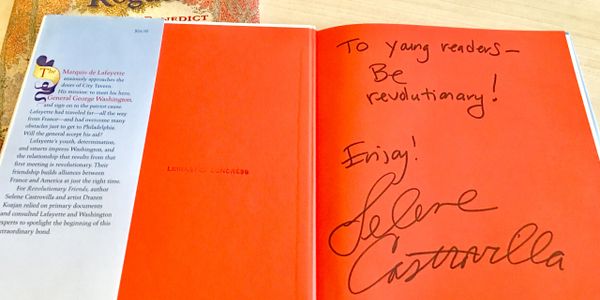 BENEDICT
$16.95
The Marquis de Lafayette
anxiously approaches the
doors of City Tavern.
His mission: to meet his hero,
General George Washington,
and sign on to the patriot cause.
Lafayette had traveled far—all the way
from France—and had overcome many
obstacles just to get to Philadelphia.
Will the general accept his aid?
Lafayette's youth, determination,
and smarts impress Washington, and
the relationship that results from that
first meeting is revolutionary. Their
friendship builds alliances between
France and America at just the right time.
For Revolutionary Friends, author
Selene Castrovilla and artist Drazen
Kozjan relied on primary documents
and consulted Lafayette and Washington
experts to spotlight the beginning of this
extraordinary bond.
LIBRARY OF CONGRESS
To young readers—
Be
revolutionary!
Enjoy!
Selene
Castrovilla